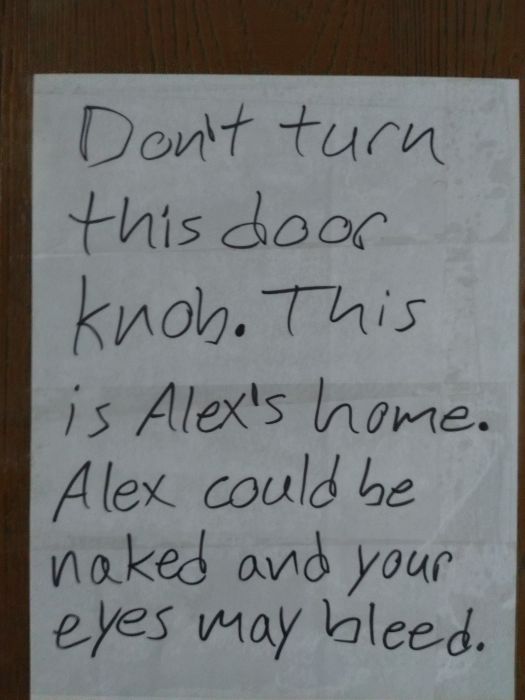 Don't turn
this door
knob. This
is Alex's home.
Alex could be
naked and your
eyes may bleed.